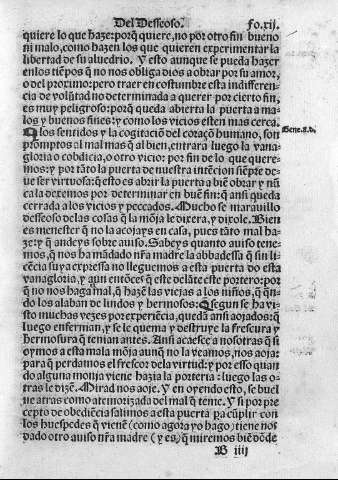 Del Desseoso. fo.xij.
quiere lo que haze: porq̃ quiere, no por otro fin bueno
ni malo, como hazen los que quieren experimentar la
libertad de su aluedrio. Y esto aunque se pueda hazer
enlos tiẽpos q̃ no nos obliga dios a obrar por su amor,
o del proximo: pero traer en costumbre esta indifferencia
de volũtad no determinada a querer por cierto fin,
es muy peligroso: porq̃ queda abierta la puerta a ma-
los y buenos fines: y como los vicios esten mas cerca.
Q̃ los sentidos y la cogitaciõ del coraçõ humano, son
promptos al mal mas q̃ al bien, entrara luego la vana
gloria o cobdicia, o otro vicio: por fin de lo que quere-
mos: y por tãto la puerta de nuestra intẽcion siẽpre de-
ue ser virtuosa: q̃ esto es abrir la puerta a biẽ obrar y nũ
ca la dexemos por determinar en buẽ fin: q̃ ansi queda
cerrada a los vicios y peccados. Mucho se marauillo
desseoso de las cosas q̃ la mõja le dixera, y dixole. Bien
es menester q̃ no la acojays en casa, pues tãto mal ha-
ze: y q̃ andeys sobre auiso. Sabeys quanto auiso tene-
mos, q̃ nos ha mãdado nr̃a madre la abbadessa q̃ sin li-
cẽcia suya expressa no lleguemos a esta puerta do esta
vanagloria, y aun entõces q̃ este delãte este portero: por
q̃ no nos haga mal, q̃ hazẽ las viejas a los niños, q̃ quã-
do los alaban de lindos y hermosos: Q̃ segun se ha vi-
sto muchas vezes por experiẽcia, quedã ansi aojados: q̃
luego enferman, y se le quema y destruye la frescura y
hermosura q̃ tenian antes. Ansi acaesce a nosotras q̃ si
oymos a esta mala mõja aunq̃ no la veamos, nos aoja:
para q̃ perdamos el frescor dela virtud: y por esso quan
do alguna monja viene hazia la porteria: luego las o-
tras le dizẽ. Mirad nos aoje. Y en oyendo esto, se buel
ue atras como atemorizada del mal q̃ teme. Y si por pre
cepto de obediẽcia salimos a esta puerta pa cũplir con
los huespedes q̃ vienẽ (como agora yo hago) tiene nos
dado otro auiso nr̃a madre (y es) q̃ miremos biẽ dõde
B iiij
Gene.8.d.